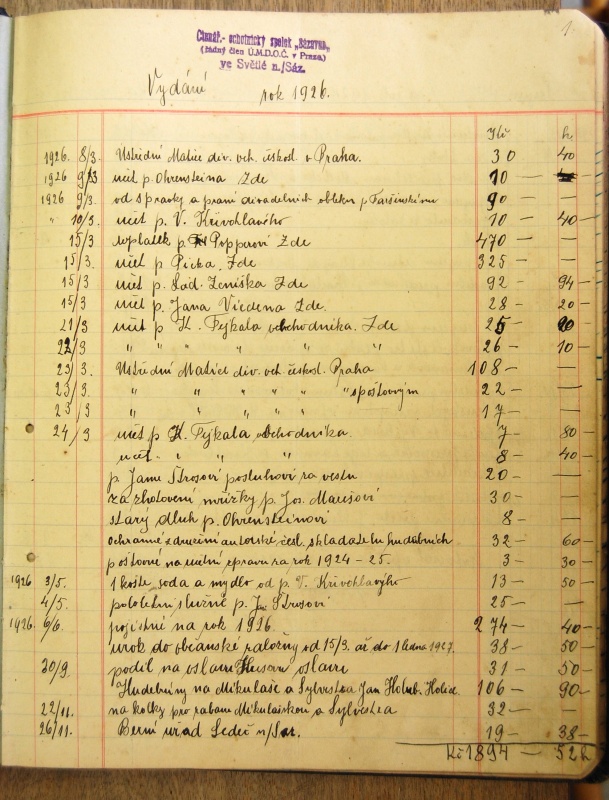 1.
Divad.- ochotnický spolek „Sázavan"
(řádný člen Ú.M.D.O.Č. v Praze)
ve Světlé n./Sáz.
Vydání rok 1926.
Kč h.
1926. 8/3. Ustřední Matice div. och. českosl. v Praha. 30 40
1926 9/3 učet p. Ohrensteina Zde 10 —
1926 9/3. od spravky a praní divadelních obleku p. 90 — —
" 10/3. učet p. V. Křivohlavého 10 — 40 —
15/3 doplatek p. Popperovi Zde 470 — —
15/3. učet p Picka. Zde 325 — —
15/3 učet p. Lad. Zeniška Zde 92 — 94 —
15/3 učet p. Jana Viedena Zde. 28 — 20 —
21/3 učet p K. Fejkala obchodníka. Zde 25 —
22/3 " " " " " 26 — 10 —
23/3 Ustřední Matice div. och. českosl. Praha 108 — —
23/3. " " " " " s poštovým 22 — —
23/3 " " " " 17 — —
24/3 učet p K. Fejkala obchodníka. 7 — 80 —
učet. " " " 8 — 40 —
p. Janu Štrosovi posluhovi za vestu 20 — —
za zhotovení mřížky p. Jos. Marešovi 30 — —
starý dluh p. Ohrensteinovi 8 — —
Ochranné združení autorské česk. skladatelu hudebních 32 — 60 —
poštovné na učetní zpravu za rok 1924 - 25. 3 — 30 —
1926 3/5. 1 koště, soda a mydlo od p. V. Křivohlavýho 13 — 50 —
4/5. pololetní služné p. Jan Štrosovi 25 — —
1926. 6/6. pojistné na rok 1926. 274 — 40 —
urok do občanské záložny od 15/3. až do 1 ledna 1927. 38 — 50 —
30/9. podíl na oslavu oslavu 31 — 50 —
Hudebníny na Mikuláše a Sylvestra Jan Holub. 106 — 90 —
22/11. na kolky pro zabavu Mikulašskou a Sylvestra 32 — —
26/11. Berní uřad Ledeč n/Saz. 19 — 38 —
Kč 1894 — 52 h